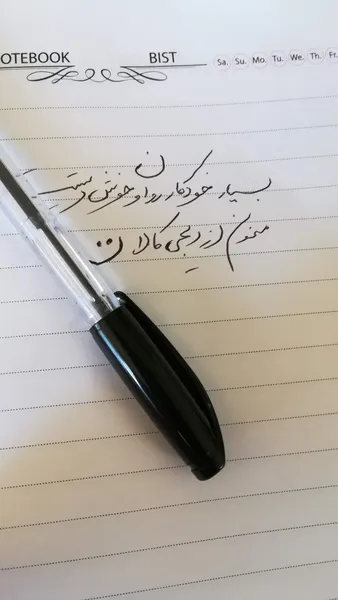 NOTEBOOK BIST Sa. Su. Mo. Tu. We. Th. Fr.
بسیار خودکار روان و خوش دستیست
ممنون از دیجی کالا